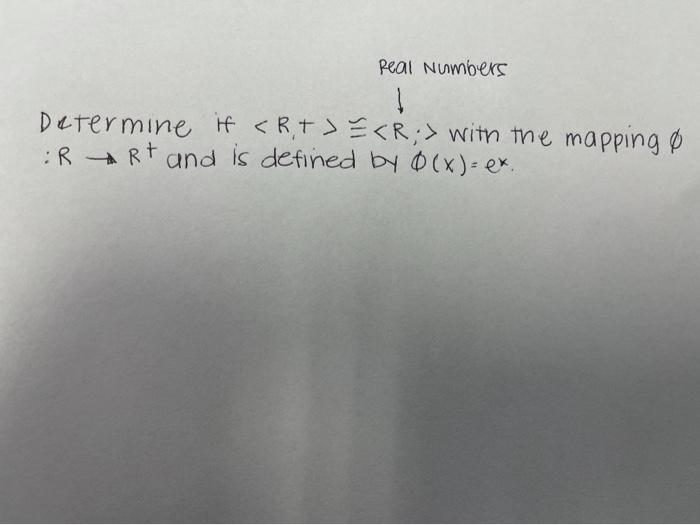 Real Numbers
↓
Determine if <R,+> ≅ <R,·> with the mapping ϕ
: R → R⁺ and is defined by ϕ(x)=eˣ.